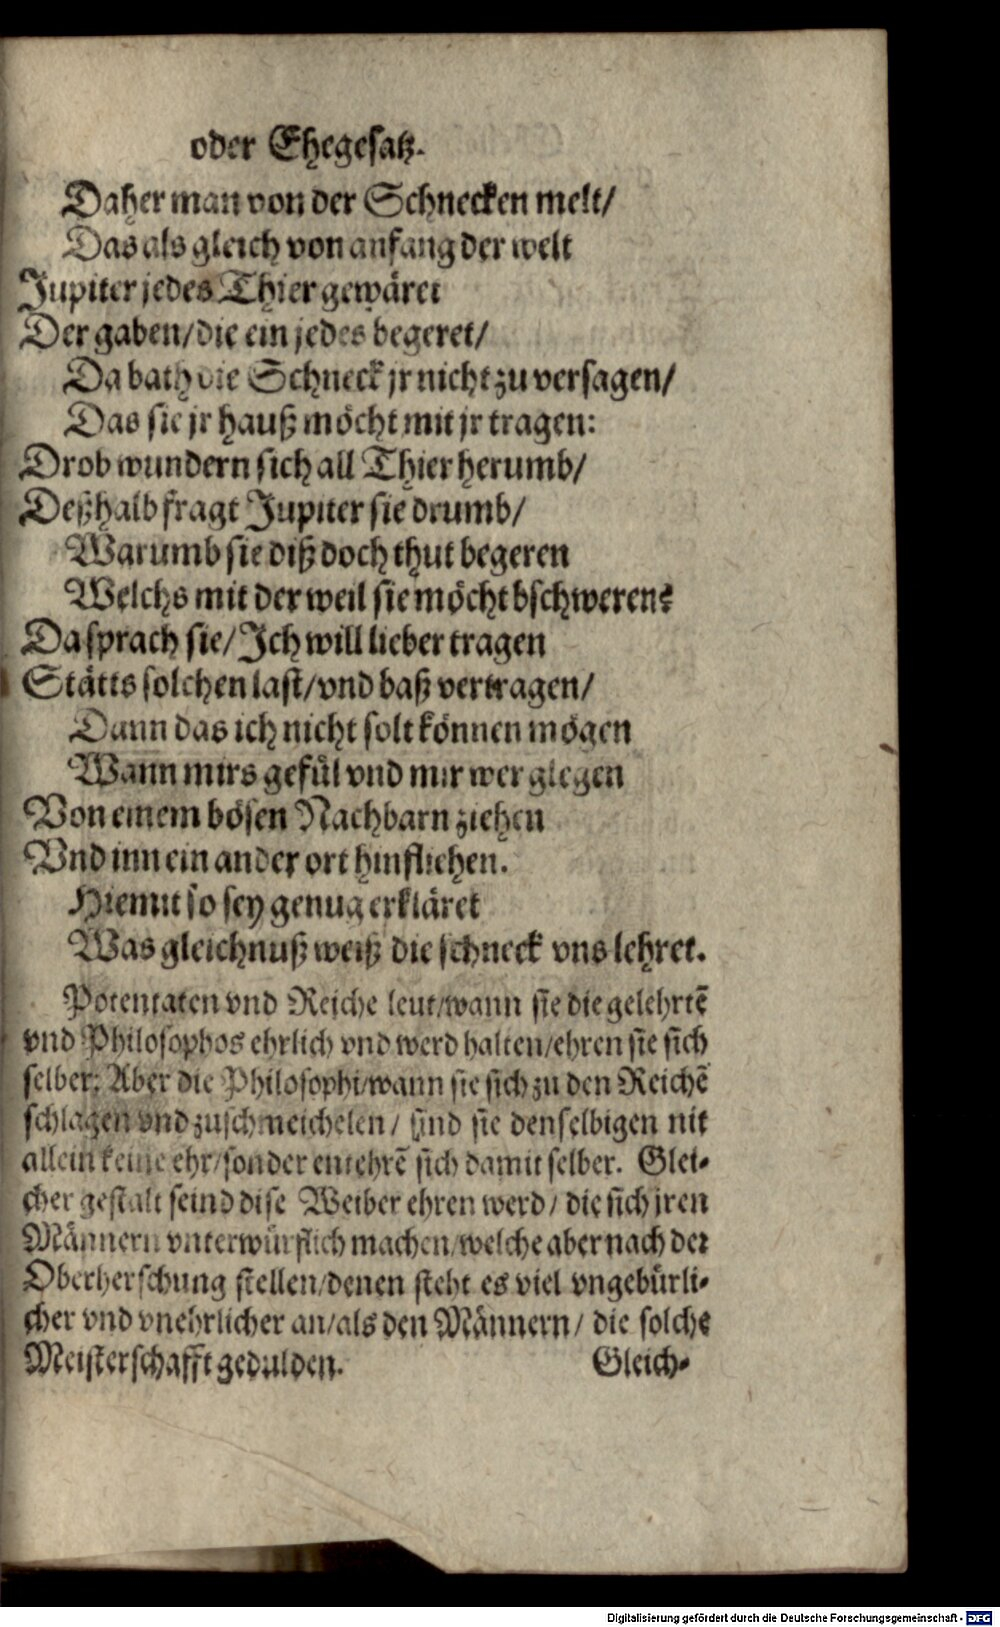 oder Ehegesatz.
Daher man von der Schnecken melt/
Das als gleich von anfang der welt
Jupiter jedes Thier gewäret
Der gaben/die ein jedes begeret/
Da bath die Schneck jr nicht zu versagen/
Das sie jr hauß möcht mit jr tragen:
Drob wundern sich all Thier herumb/
Deßhalb fragt Jupiter sie drumb/
Warumb sie diß doch thut begeren
Welchs mit der weil sie möcht bschweren?
Da sprach sie/Ich will lieber tragen
Stätts solchen last/vnd baß vertragen/
Dann das ich nicht solt können mögen
Wann mirs gefül vnd mir wer glegen
Von einem bösen Nachbarn ziehen
Vnd inn ein ander ort hinfliehen.
Hiemit so sey genug erkläret
Was gleichnuß weiß die schneck vns lehret.
Potentaten vnd Reiche leut/wann sie die gelehrtē
vnd Philosophos ehrlich vnd werd halten/ehren sie sich
selber: Aber die Philosophi/wann sie sich zu den Reichē
schlagen vnd zuschmeichelen/ sind sie denselbigen nit
allein keine ehr/sonder entehrē sich damit selber. Glei-
cher gestalt seind dise Weiber ehren werd/ die sich jren
Männern vnterwürfflich machen/welche aber nach der
Oberherschung stellen/denen steht es viel vngebürli-
cher vnd vnehrlicher an/als den Männern/ die solche
Meisterschafft gedulden. Gleich-
Digitalisierung gefördert durch die Deutsche Forschungsgemeinschaft - DFG